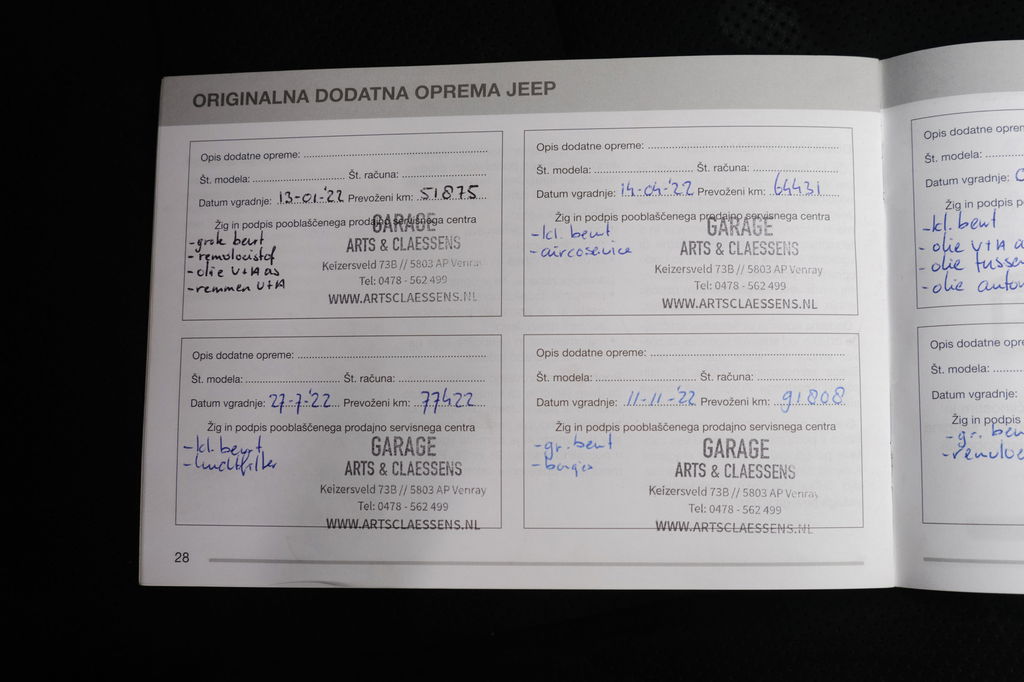 ORIGINALNA DODATNA OPREMA JEEP
Opis dodatne opreme:
Št. modela: Št. računa:
Datum vgradnje: 13-01-'22 Prevoženi km: 51875
Žig in podpis pooblaščenega prodajno servisnega centra
GARAGE
ARTS & CLAESSENS
Keizersveld 73B // 5803 AP Venray
Tel: 0478 - 562 499
WWW.ARTSCLAESSENS.NL
- grote beurt
- remvloeistof
- olie V+A as
- remmen V+A
Opis dodatne opreme:
Št. modela: Št. računa:
Datum vgradnje: 14-04-'22 Prevoženi km: 64431
Žig in podpis pooblaščenega prodajno servisnega centra
GARAGE
ARTS & CLAESSENS
Keizersveld 73B // 5803 AP Venray
Tel: 0478 - 562 499
WWW.ARTSCLAESSENS.NL
- kl. beurt
- aircoservice
Opis dodatne opreme:
Št. modela: Št. računa:
Datum vgradnje: 27-7-'22 Prevoženi km: 77422
Žig in podpis pooblaščenega prodajno servisnega centra
GARAGE
ARTS & CLAESSENS
Keizersveld 73B // 5803 AP Venray
Tel: 0478 - 562 499
WWW.ARTSCLAESSENS.NL
- kl. beurt
- luchtfilter
Opis dodatne opreme:
Št. modela: Št. računa:
Datum vgradnje: 11-11-'22 Prevoženi km: 91808
Žig in podpis pooblaščenega prodajno servisnega centra
GARAGE
ARTS & CLAESSENS
Keizersveld 73B // 5803 AP Venray
Tel: 0478 - 562 499
WWW.ARTSCLAESSENS.NL
- gr. beurt
- bougies
28
Opis dodatne oprem
Št. modela:
Datum vgradnje:
Žig in p
- kl. beurt
- olie V+A a
- olie tusse
- olie autom
Opis dodatne opre
Št. modela:
Datum vgradnje:
Žig in
- gr. beu
- remvloe